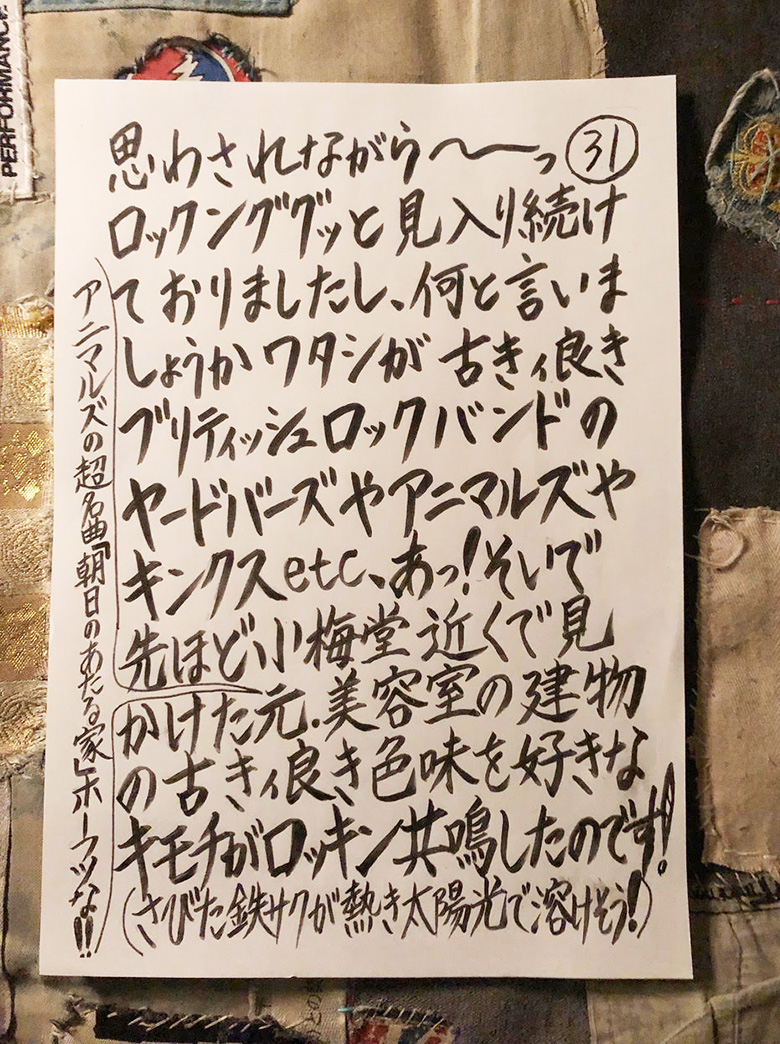 思わされながら〜〜っ ㉛
ロックングググッと見入り続け
ておりましたし、何と言いま
しょうかワタシが古きィ良き
ブリティッシュロックバンドの
ヤードバーズやアニマルズや
キンクスetc、あっ!そいで
先ほど小梅堂近くで見
かけた元.美容室の建物
の古きィ良き色味を好きな
キモチがロッキン共鳴したのです!
(さびた鉄サクが熱き太陽光で溶けそう!)
アニマルズの超名曲「朝日のあたる家」ホーラツな!!
PERFORMANCE